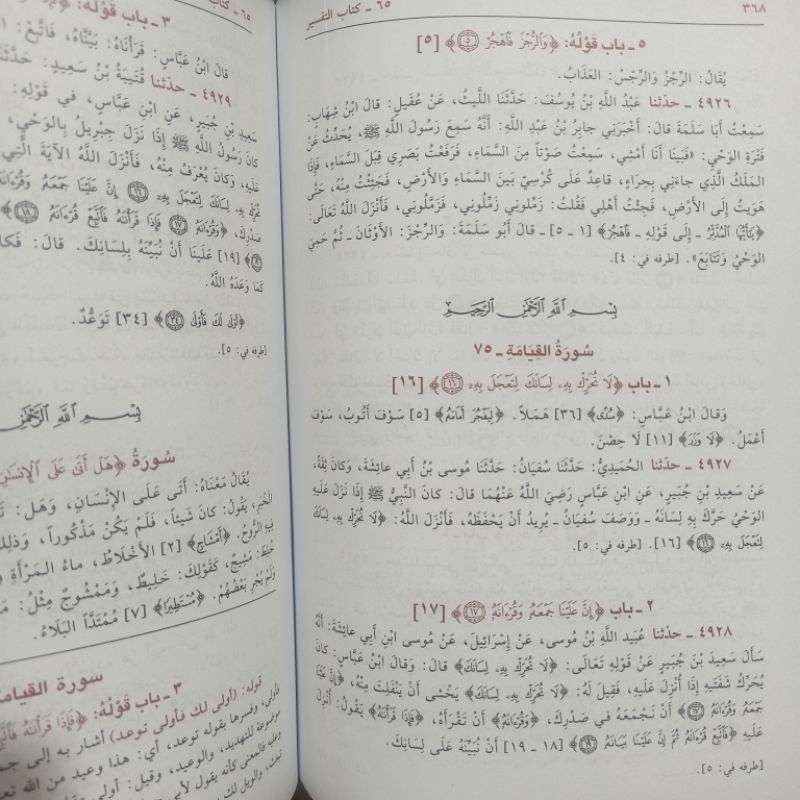 ٣٦٨
٦٥ ـ كتاب التفسير
٥ ـ باب قَوْلُهُ: ﴿وَالرُّجْزَ فَاهْجُرْ ۝٥﴾ [٥]
يُقَالُ: الرِّجْزُ وَالرِّجْسُ: العَذَابُ.
٤٩٢٦ ـ حدّثنا عَبْدُ اللَّهِ بْنُ يُوسُفَ: حَدَّثَنَا اللَّيثُ، عَنْ عُقَيلٍ: قالَ ابْنُ شِهَابٍ:
سَمِعْتُ أَبَا سَلَمَةَ قالَ: أَخْبَرَنِي جابِرُ بْنُ عَبْدِ اللَّهِ: أَنَّهُ سَمِعَ رَسُولَ اللَّهِ ﷺ، يُحَدِّثُ عَنْ
فَتْرَةِ الوَحْيِ: «فَبَينَا أَنَا أَمْشِي، سَمِعْتُ صَوْتاً مِنَ السَّمَاءِ، فَرَفَعْتُ بَصَرِي قِبَلَ السَّمَاءِ، فَإِذَا
المَلَكُ الَّذِي جاءَنِي بِحِرَاءٍ، قاعِدٌ عَلَى كُرْسِيٍّ بَينَ السَّمَاءِ وَالأَرْضِ، فَجَئِثْتُ مِنْهُ، حَتَّى
هَوَيتُ إِلَى الأَرْضِ، فَجِئْتُ أَهْلِي فَقُلْتُ: زَمِّلُونِي زَمِّلُونِي، فَزَمَّلُونِي، فَأَنْزَلَ اللَّهُ تَعَالَى:
﴿يَا أَيُّهَا الْمُدَّثِّرُ ـ إِلَى قَوْلِهِ ـ فَاهْجُرْ﴾ [١ ـ ٥] ـ قالَ أَبُو سَلَمَةَ: وَالرِّجْزَ: الأَوْثَانَ ـ ثُمَّ حَمِيَ
الوَحْيُ وَتَتَابَعَ». [طرفه في: ٤].
بِسْمِ اللَّهِ الرَّحْمَٰنِ الرَّحِيمِ
سُورَةُ القِيَامَةِ ـ ٧٥
١ ـ باب ﴿لَا تُحَرِّكْ بِهِ لِسَانَكَ لِتَعْجَلَ بِهِ ۝١٦﴾ [١٦]
وَقالَ ابْنُ عَبَّاسٍ: ﴿سُدًى﴾ [٣٦] هَمَلاً. ﴿لِيَفْجُرَ أَمَامَهُ﴾ [٥] سَوْفَ أَتُوبُ، سَوْفَ
أَعْمَلُ. ﴿لَا وَزَرَ﴾ [١١] لَا حِصْنَ.
٤٩٢٧ ـ حدّثنا الحُمَيدِيُّ: حَدَّثَنَا سُفيَانُ: حَدَّثَنَا مُوسى بْنُ أَبِي عائِشَةَ، وَكانَ ثِقَةً،
عَنْ سَعِيدِ بْنِ جُبَيرٍ، عَنِ ابْنِ عَبَّاسٍ رَضِيَ اللَّهُ عَنْهُمَا قالَ: كانَ النَّبِيُّ ﷺ إِذَا نَزَلَ عَلَيهِ
الوَحْيُ حَرَّكَ بِهِ لِسَانَهُ ـ وَوَصَفَ سُفيَانُ ـ يُرِيدُ أَنْ يَحْفَظَهُ، فَأَنْزَلَ اللَّهُ: ﴿لَا تُحَرِّكْ بِهِ لِسَانَكَ
لِتَعْجَلَ بِهِ ۝١٦﴾ [١٦]. [طرفه في: ٥].
٢ ـ باب ﴿إِنَّ عَلَيْنَا جَمْعَهُ وَقُرْآنَهُ ۝١٧﴾ [١٧]
٤٩٢٨ ـ حدّثنا عُبَيدُ اللَّهِ بْنُ مُوسى، عَنْ إِسْرَائِيلَ، عَنْ مُوسى ابْنِ أَبِي عائِشَةَ: أَنَّهُ
سَأَلَ سَعِيدَ بْنَ جُبَيرٍ عَنْ قَوْلِهِ تَعَالَى: ﴿لَا تُحَرِّكْ بِهِ لِسَانَكَ﴾ قالَ: وَقالَ ابْنُ عَبَّاسٍ: كانَ
يُحَرِّكُ شَفَتَيهِ إِذَا أُنْزِلَ عَلَيهِ، فَقِيلَ لَهُ: ﴿لَا تُحَرِّكْ بِهِ لِسَانَكَ﴾ يَخْشى أَنْ يَنْفَلِتَ مِنْهُ، ﴿إِنَّ عَلَيْنَا
جَمْعَهُ وَقُرْآنَهُ ۝١٧﴾ أَنْ نَجْمَعَهُ في صَدْرِكَ، ﴿وَقُرْآنَهُ﴾ أَنْ تَقْرَأَهُ، ﴿فَإِذَا قَرَأْنَاهُ﴾ يَقُولُ: أُنْزِلَ
عَلَيهِ ﴿فَاتَّبِعْ قُرْآنَهُ ثُمَّ إِنَّ عَلَيْنَا بَيَانَهُ ۝١٩﴾ [١٨ ـ ١٩] أَنْ نُبَيِّنَهُ عَلَى لِسَانِكَ.
[طرفه في: ٥].
٦٥ ـ كتاب
٣ ـ باب قَوْلُهُ:
قالَ ابْنُ عَبَّاسٍ: قَرَأْنَاهُ: بَيَّنَّاهُ، فَاتَّبِعْ:
٤٩٢٩ ـ حدّثنا قُتَيبَةُ بْنُ سَعِيدٍ:
سَعِيدِ بْنِ جُبَيرٍ، عَنِ ابْنِ عَبَّاسٍ، في قَوْلِهِ:
كانَ رَسُولُ اللَّهِ ﷺ إِذَا نَزَلَ جِبْرِيلُ بِالوَحْيِ،
عَلَيهِ، وَكانَ يُعْرَفُ مِنْهُ، فَأَنْزَلَ اللَّهُ الآيَةَ الَّتِي
تُحَرِّكْ بِهِ لِسَانَكَ لِتَعْجَلَ بِهِ ۝١٦ إِنَّ عَلَيْنَا جَمْعَهُ وَقُرْآنَهُ
صَدْرِكَ، ﴿وَقُرْآنَهُ ۝١٧ فَإِذَا قَرَأْنَاهُ فَاتَّبِعْ قُرْآنَهُ ۝١٨﴾
[١٩] عَلَينَا أَنْ نُبَيِّنَهُ بِلِسَانِكَ. قالَ:
كَمَا وَعَدَهُ اللَّهُ.
﴿أَوْلَى لَكَ فَأَوْلَى ۝٣٤﴾ [٣٤] تَوَعُّدٌ.
[طرفه في: ٥].
بِسْمِ اللَّهِ الرَّحْمَٰنِ
سُورَةُ ﴿هَلْ أَتَى عَلَى الْإِنْسَانِ
يُقَالُ مَعْنَاهُ: أَتَى عَلَى الإِنْسَانِ، وَهَل:
الخَبَرِ، يَقُولُ: كانَ شَيئاً، فَلَمْ يَكُنْ مَذْكُوراً،
فِيهِ الرُّوحُ. ﴿أَمْشَاجٍ﴾ [٢] الأَخْلَاطُ، ماءُ المَرْأَةِ
خُلِطَ: مَشِيجٌ، كَقَوْلِكَ: خَلِيطٌ، وَمَمْشُوجٌ مِثْلُ:
وَلَمْ يُجْرِ بَعْضُهُمْ. ﴿مُسْتَطِيرًا﴾ [٧] مُمْتَدًّا البَلَاءُ.
سورة القيامة
٣ ـ باب قَوْلُهُ: ﴿فَإِذَا قَرَأْنَاهُ
قوله: (أولى لك فأولى توعد) أشار به إلى
فأولى، وفسرها بقوله توعد، أي: هذا وعيد من الله
موضوعة للتهديد، والوعيد، وقيل: أولى